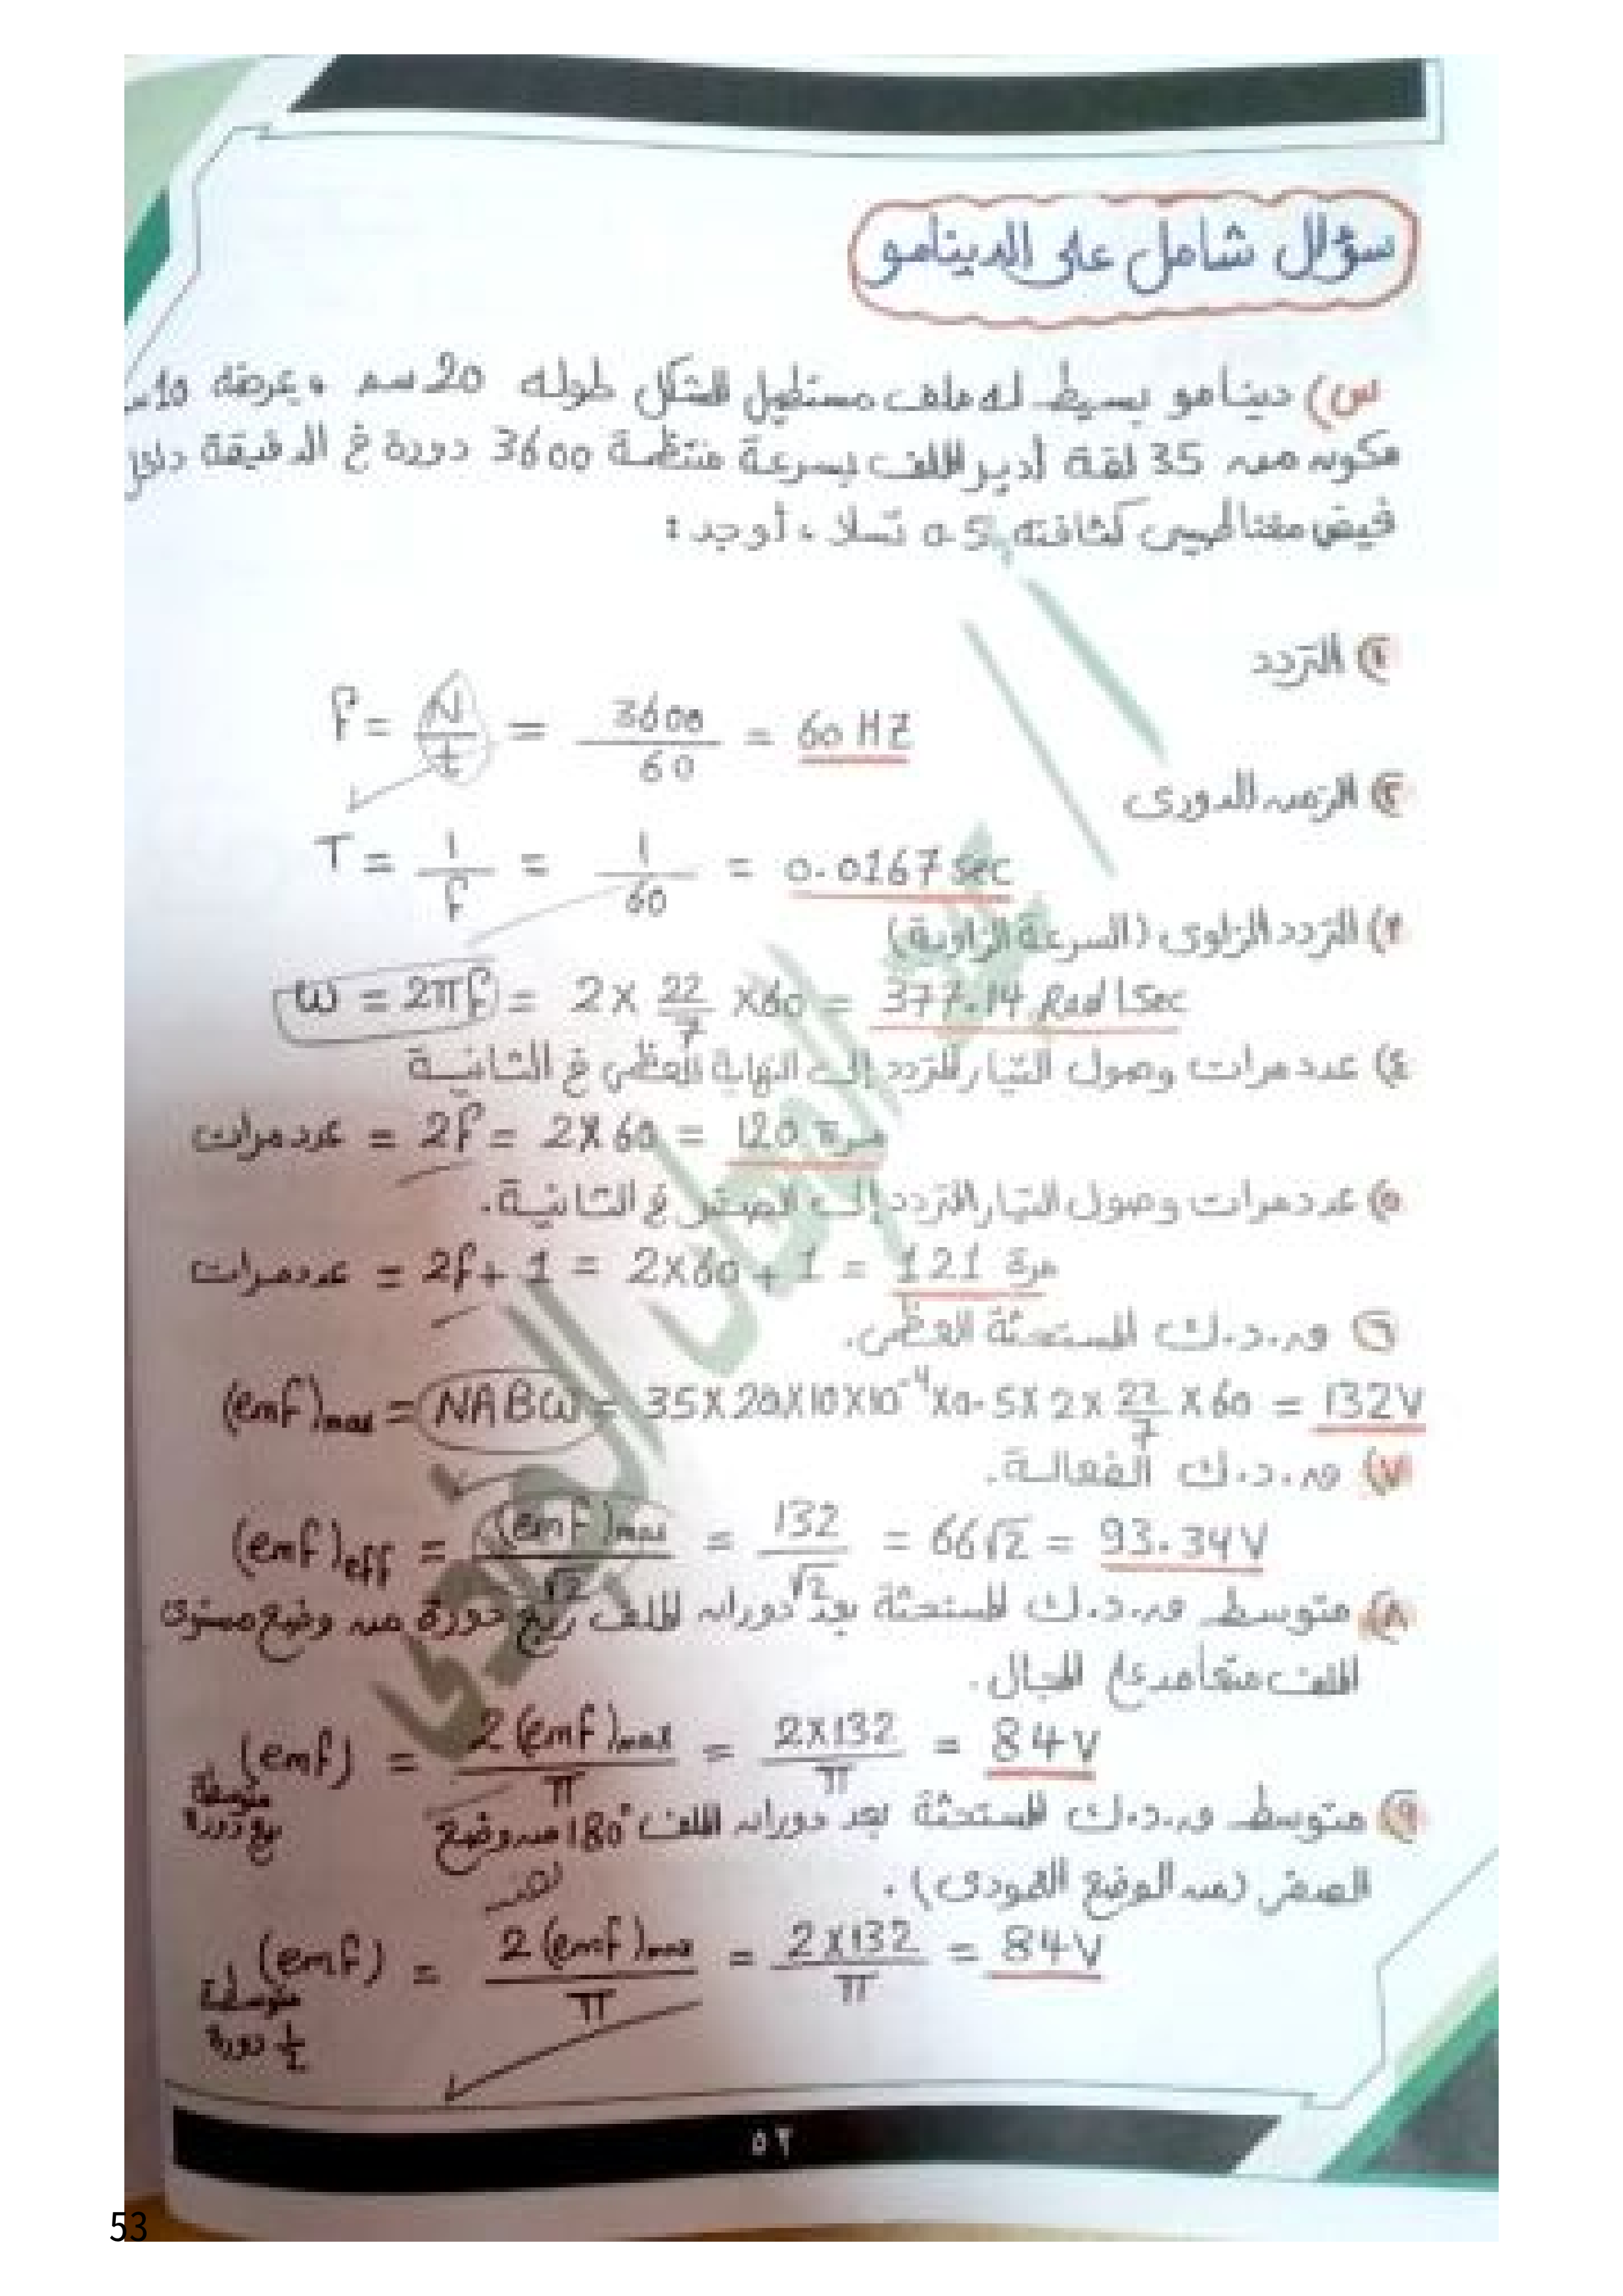 سؤال شامل على الدينامو
س) دينامو بسيط له ملف مستطيل الشكل طوله 20 سم ، عرضه 10 سم
مكون من 35 لفة أدير الملف بسرعة منتظمة 3600 دورة في الدقيقة داخل
فيض مغناطيسى كثافته 0.5 تسلا ، أوجد :
١) التردد
f = N/t = 3600/60 = 60 HZ
٢) الزمن الدورى
T = 1/f = 1/60 = 0.0167 sec
٣) التردد الزاوى (السرعة الزاوية)
ω = 2πf = 2 × 22/7 × 60 = 377.14 Rad/Sec
٤) عدد مرات وصول التيار المتردد إلى النهاية العظمى في الثانية
عدد مرات = 2f = 2 × 60 = 120 مرة
٥) عدد مرات وصول التيار المتردد إلى الصفر في الثانية.
عدد مرات = 2f + 1 = 2×60 + 1 = 121 مرة
٦) ق.د.ك المستحثة العظمى.
(emf)max = NABω = 35×20×10×10⁻⁴×0.5×2×22/7×60 = 132V
٧) ق.د.ك الفعالة.
(emf)eff = (emf)max/√2 = 132/√2 = 66√2 = 93.34V
٨) متوسط ق.د.ك المستحثة بعد دوران الملف ربع دورة من وضع مستوى
الملف متعامد على المجال.
(emf) متوسطة ربع دورة = 2(emf)max/π = 2×132/π = 84V
٩) متوسط ق.د.ك المستحثة بعد دوران الملف 180° من وضع
الصفر (من الوضع العمودى).
(emf) متوسطة ½ دورة = 2(emf)max/π = 2×132/π = 84V
٥٢
53